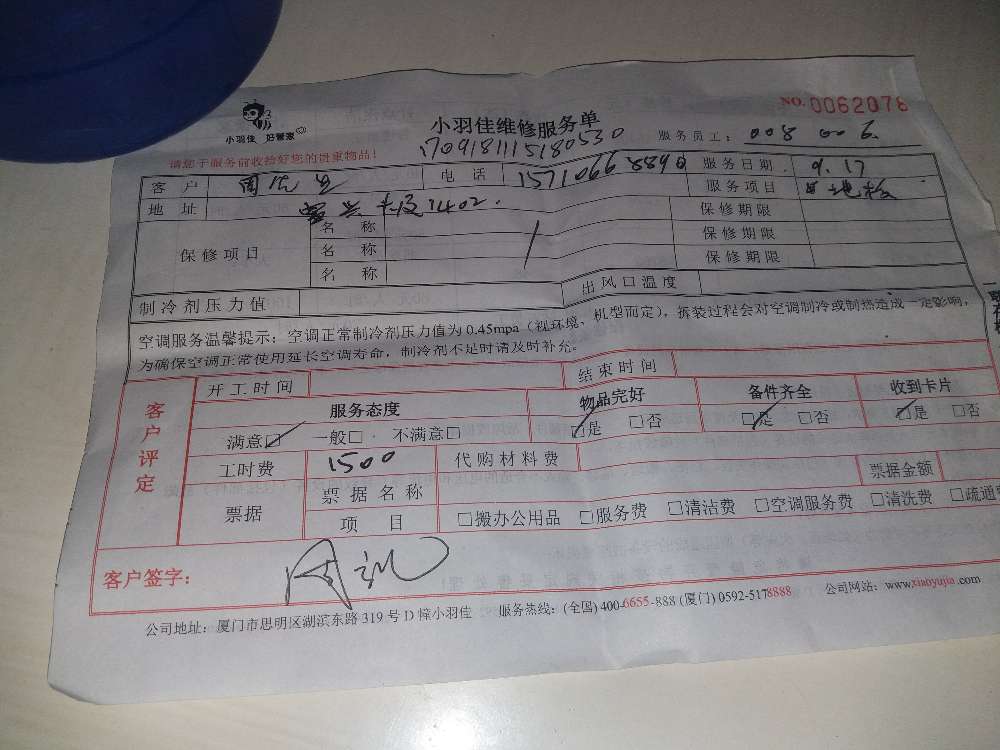 NO.0062078
小羽佳 好管家
小羽佳维修服务单
请您于服务前收拾好您的贵重物品！
服务员工： 008 006
客 户 电 话 服务日期 9.17
地 址 1402. 服务项目 地板
保修项目 名 称 保修期限
名 称 保修期限
名 称 保修期限
制冷剂压力值 出风口温度
空调服务温馨提示：空调正常制冷剂压力值为 0.45mpa（视环境、机型而定），拆装过程会对空调制冷或制热造成一定影响，
为确保空调正常使用延长空调寿命，制冷剂不足时请及时补充。
客户评定
开工时间 结束时间
服务态度 物品完好 备件齐全 收到卡片
满意☑ 一般□ 不满意□ ☑是 □否 ☑是 □否 ☑是 □否
工时费 1500 代购材料费
票据 票据名称 票据金额
项 目 □搬办公用品 □服务费 □清洁费 □空调服务费 □清洗费 □疏通
客户签字：
公司地址：厦门市思明区湖滨东路 319 号 D 幢小羽佳 服务热线：(全国) 400-6655-888 (厦门) 0592-5178888 公司网站：www.xiaoyujia.com